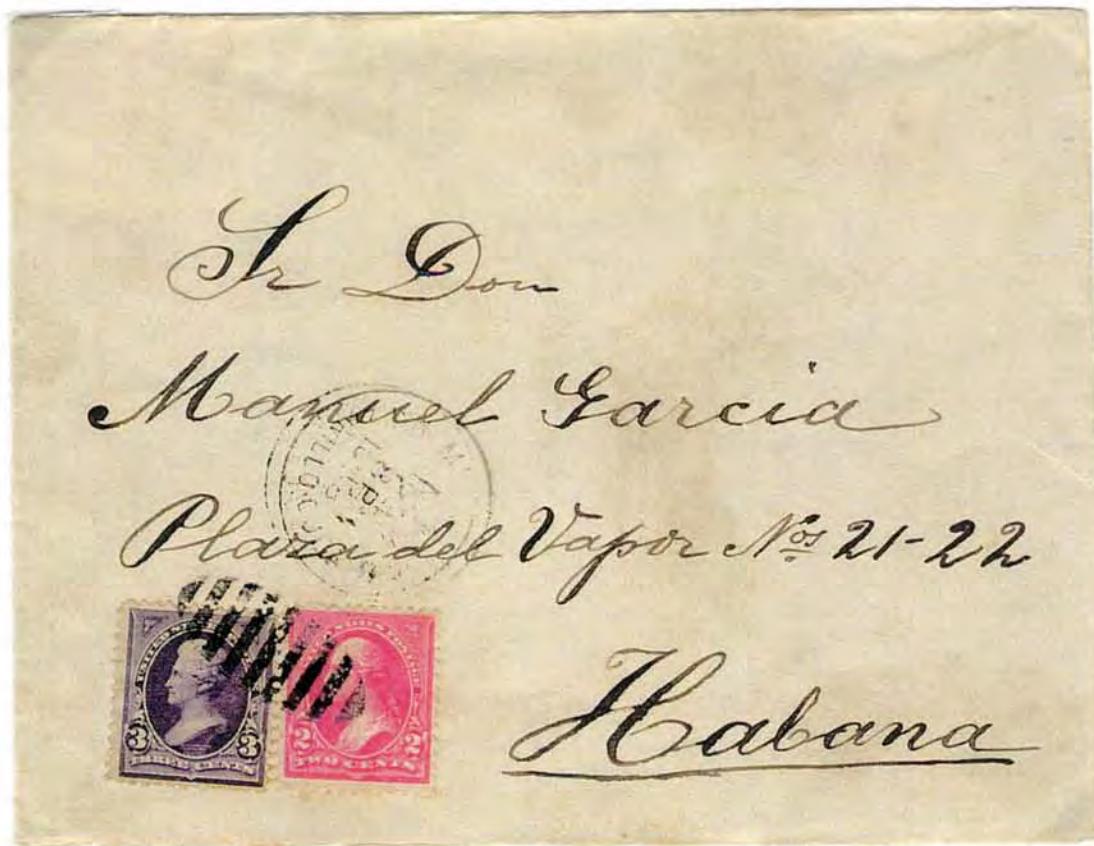 Sr Don
Manuel Garcia
Plaza del Vapor Nos 21-22
Habana
3 3
2 2
TWO CENTS